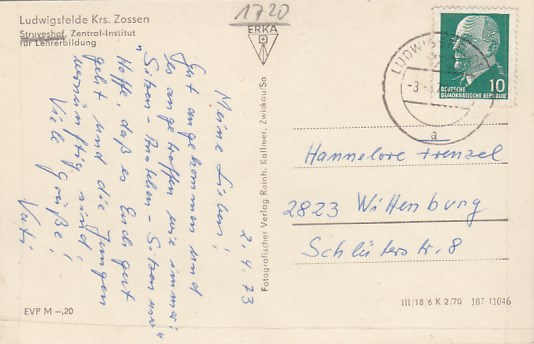 Ludwigsfelde Krs. Zossen
Struveshof, Zentral-Institut
für Lehrerbildung
1720
ERKA
2.4.73
Meine Lieben!
Gut angekommen und
angetroffen wie immer:
"Sitzen - Brüten - Sitzen usw"
Hoffe, daß es Euch gut
geht und die Jungen
vernünftig sind!
Viele Grüße!
Vati
EVP M –,20
Fotografischer Verlag Reinh. Kallmer, Zwickau/Sa
LUDWIGS
DEUTSCHE
DEMOKRATISCHE REPUBLIK
10
a
Hannelore Frenzel
2823 Wittenburg
Schlüterstr. 8
III/18/6 K 2/70 187-11046